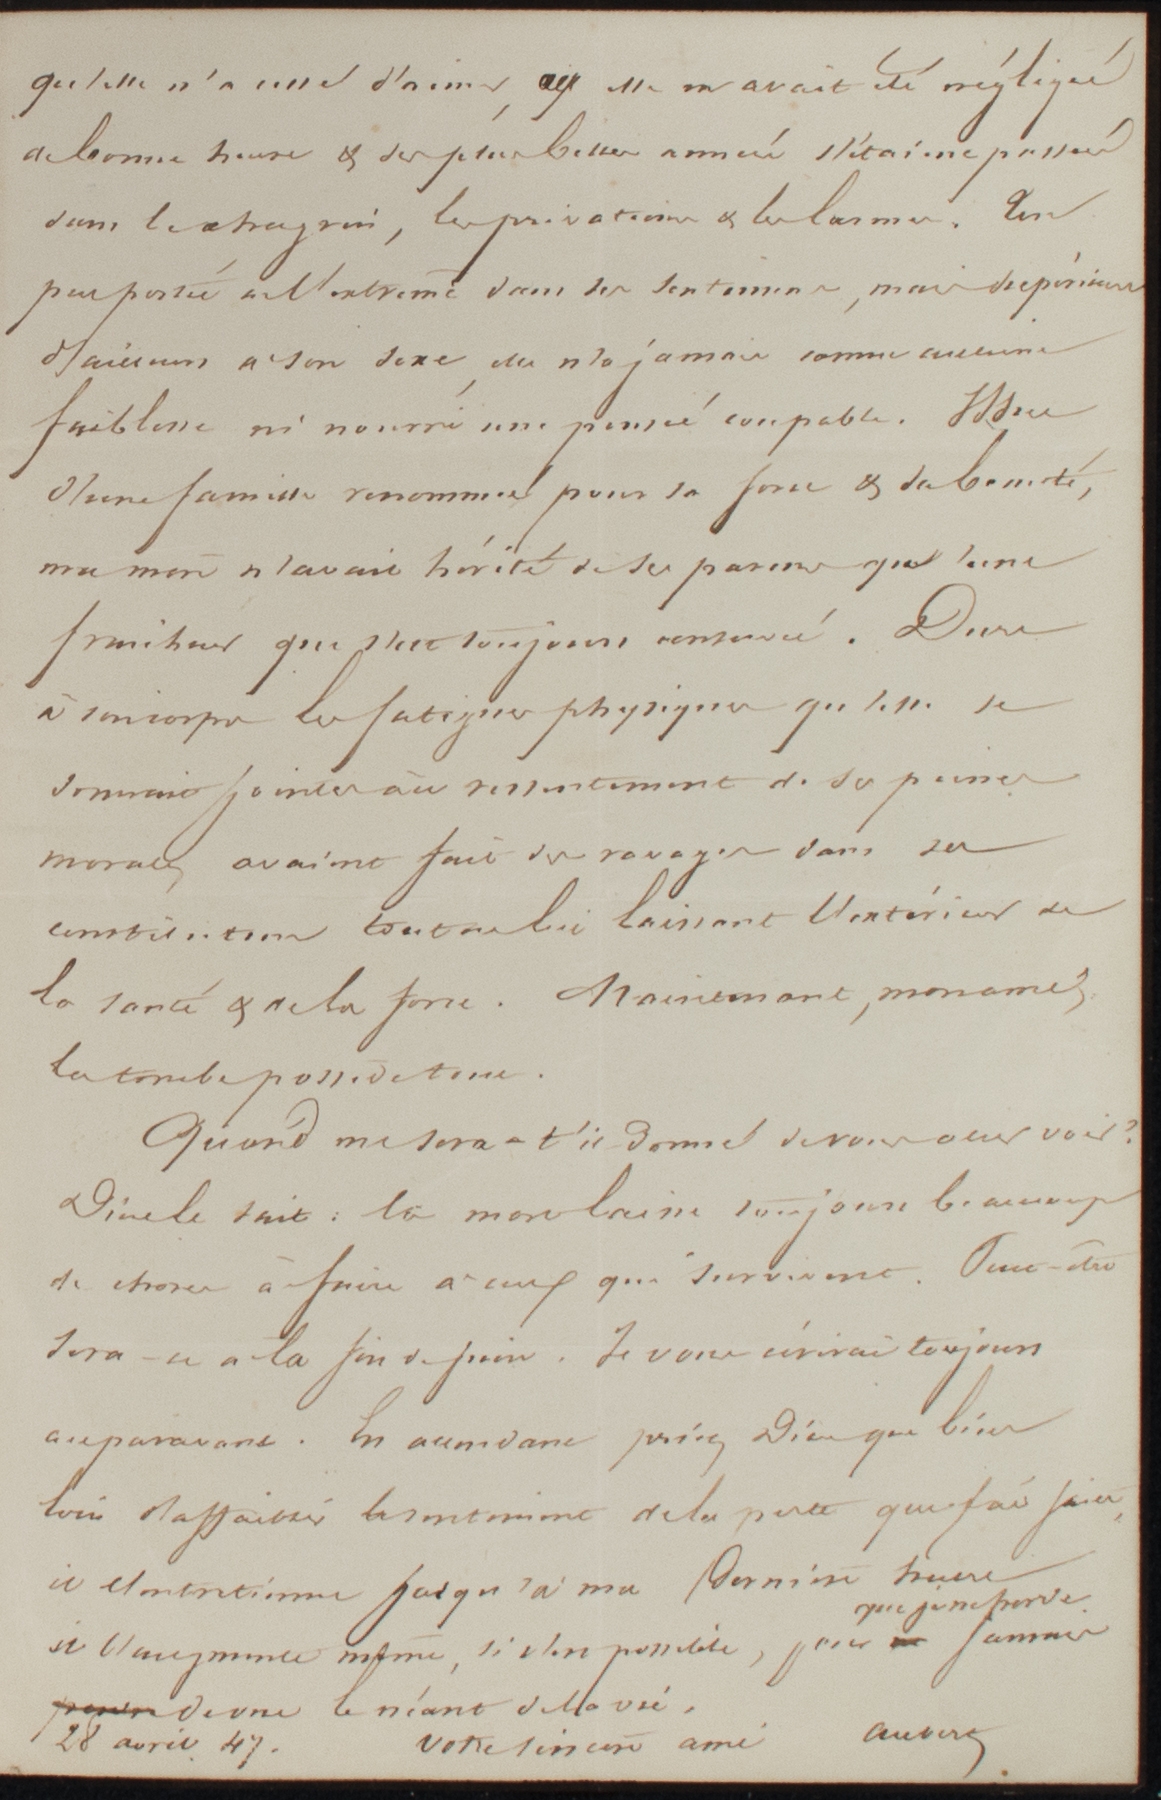 qu'elle n'a cessé d'aimer, elle m'avait été négligée
de bonne heure & ses plus belles années s'étaient passées
dans le chagrin, les privations & les larmes. Un
peu portée à l'extrême dans ses sentimens, mais supérieure
d'ailleurs à son sexe, elle n'a jamais connu aucune
faiblesse ni nourri une pensée coupable. Issue
d'une famille renommée pour sa force & sa beauté,
ma mère n'avait hérité de ses parens qu'une
fraicheur qui s'est toujours conservée. Dure
à son corps les fatigues physiques qu'elle se
donnait jointes au ressentiment de ses peines
morales, avaient fait des ravages dans sa
constitution tout en lui laissant l'extérieur de
la santé & de la force. Maintenant, mon ami,
la tombe possède tout.
Quand me sera-t'il donné de vous aller voir?
Dieu le sait: la mort laisse toujours beaucoup
de choses à faire à ceux qui survivent. Peut-être
sera-ce à la fin de juin. Je vous écrirai toujours
auparavant. En attendant priez Dieu que bien
loin d'affaiblir le sentiment de la perte que j'ai faite,
il l'entretienne jusqu'à ma dernière heure
que je ne perde
il l'augmente même, s'il est possible, pour jamais
de vue le néant de la vie.
28 avril 47. votre sincère ami auvert